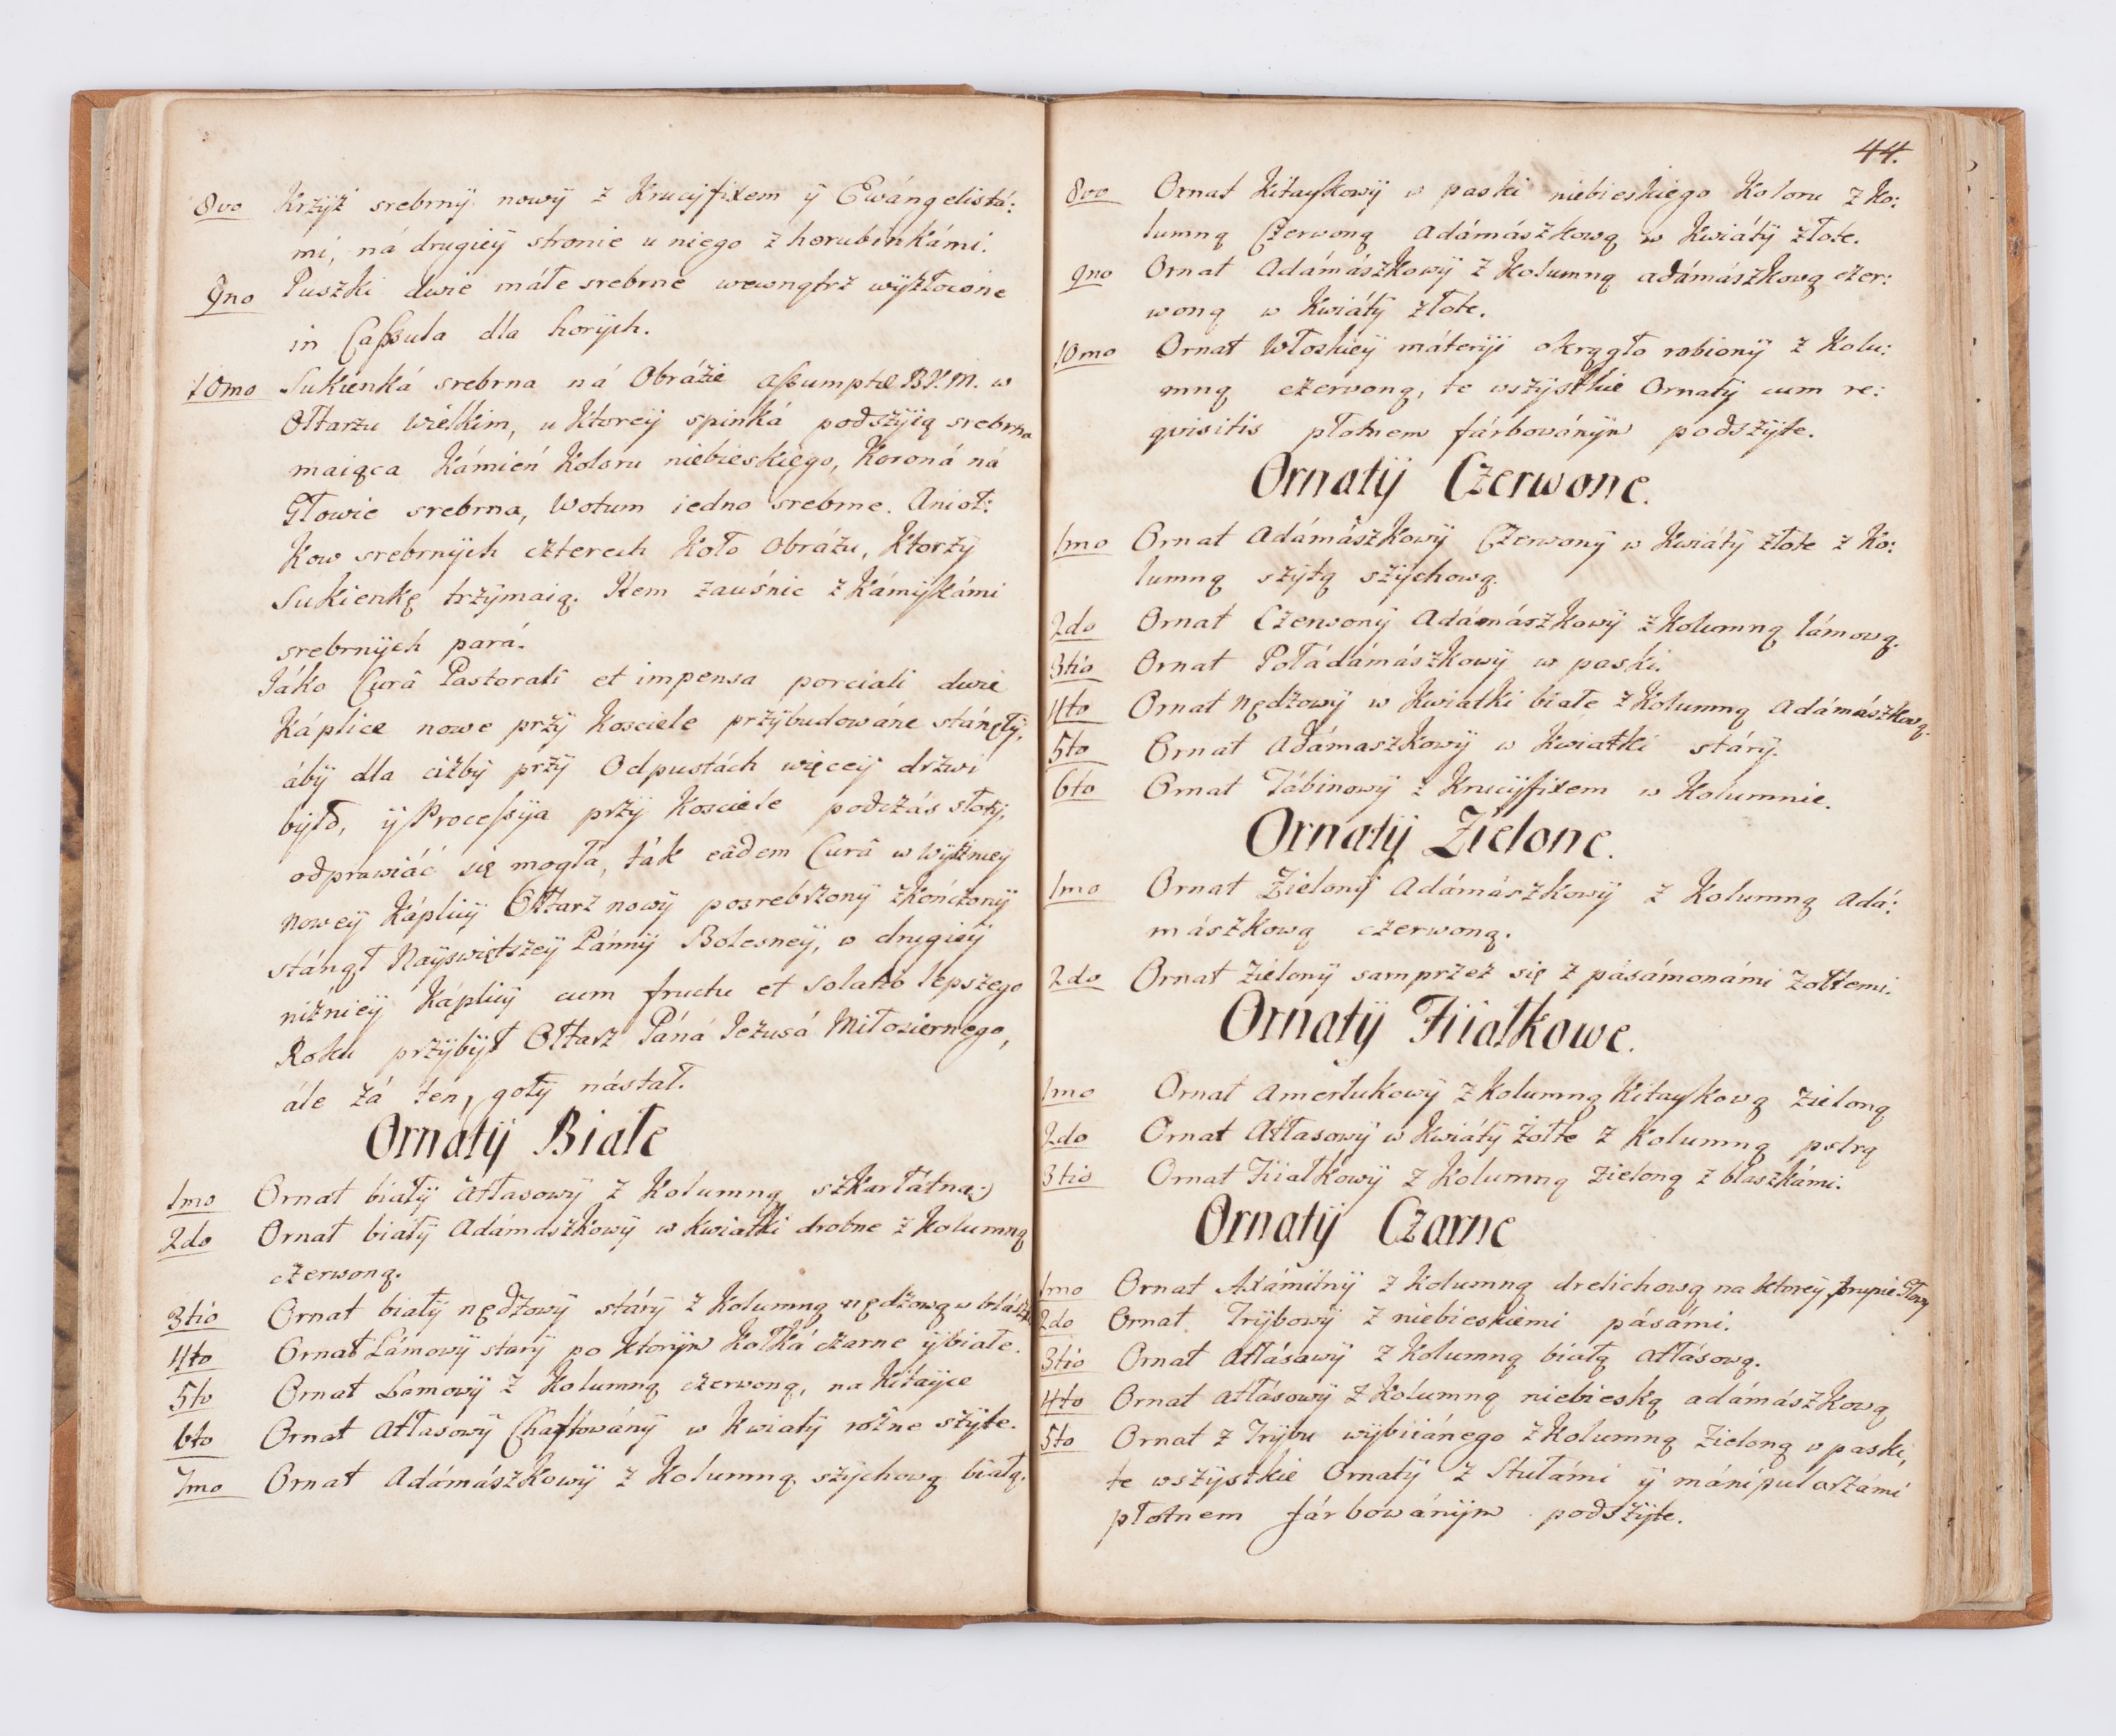 8vo Krzÿż srebrnÿ nowÿ z Krucÿfixem ÿ Ewángelistá:
mi, ná drugieÿ stronie u niego z horubinkámi.
9no Puszki dwie máłe srebrne wewnątrz wÿzłocone
in Caſsula dla horÿch.
10mo Sukienká srebrna ná Obrázie Aſsumptæ B.V.M. w
Ołtarzu Wielkim, u Ktoreÿ spinká podszÿią srebrna
maiąca Kámień Koloru niebieskiego, Koroná ná
Głowie srebrna, Wotum iedno srebrne. Anioł:
Kow srebrnÿch czterech Koło Obrázu, Ktorzÿ
Sukienkę trzÿmaią. Item zauśnic z Kámÿkámi
srebrnÿch pará.
Jáko Curâ Pastorali et impensa porciali dwie
Káplice nowe przÿ Kosciele przÿbudowáne stánęłÿ,
ábÿ dla ciżbÿ przÿ Odpustách więceÿ drzwi
bÿło, ÿ Proceſsÿa przÿ Kosciele podczás słotÿ,
odprawiáć się mogła, ták eâdem Curâ w Wÿżnieÿ
noweÿ Káplicÿ Ołtarz nowÿ posrebrzonÿ zkończonÿ
stánął Naÿswiętszeÿ Pánnÿ Bolesneÿ, w drugieÿ
niżnieÿ Káplicÿ cum fructu et solatio lepszego
Roku przÿbÿł Ołtarz Páná Jezusá Miłosiernego,
ále zá ten, gołÿ nástał.
Ornatÿ Białe
1mo Ornat białÿ Atłasowÿ z Kolumną szkarłátną:)
2do Ornat białÿ Adámaszkowÿ w kwiatki drobne z Kolumną
czerwoną.
3tio Ornat białÿ nędzowÿ stárÿ z Kolumną nędzową w
4to Ornat Lámowÿ starÿ po Ktorÿm Kołká czarne ÿ białe.
5to Ornat Lamowÿ z Kolumną czerwoną, na Kitaÿce
6to Ornat Atłasowÿ Chaftowánÿ w Kwiatÿ rożne szÿte.
7mo Ornat Adámászkowÿ z Kolumną szÿchową białą.
44.
8vo Ornat Kitaykowÿ w paski niebieskiego Koloru z Ko:
lumną Czerwoną Adámászkową w Kwiátÿ złote.
9no Ornat Adámászkowÿ z Kolumną adámászkową czer:
woną w Kwiátÿ złote.
10mo Ornat Włoskieÿ máterÿi okrągło robionÿ z Kolu:
mną czerwoną, te wszÿstkie Ornatÿ cum re:
qvisitis płotnem fárbowánÿm podszÿte.
Ornatÿ Czerwone.
1mo Ornat Adámászkowÿ Czerwonÿ w Kwiátÿ złote z Ko:
lumną szÿtą szÿchową.
2do Ornat Czerwonÿ Adámászkowÿ z Kolumną lámową.
3tio Ornat Połádámászkowÿ w paski.
4to Ornat Nędzowÿ w Kwiatki białe z Kolumną Adámászkową.
5to Ornat Adámaszkowÿ w Kwiatki stárÿ.
6to Ornat Tábinowÿ z Krucÿfixem w Kolumnie.
Ornatÿ Zielone.
1mo Ornat Zielonÿ Adámászkowÿ z Kolumną Adá:
mászkową czerwoną.
2do Ornat Zielonÿ sam przez się z pásámonámi żołtemi.
Ornatÿ Fiiałkowe.
1mo Ornat Amerlukowÿ z Kolumną Kitaykową zieloną
2do Ornat Atłasowÿ w Kwiátÿ żołte z Kolumną pstrą
3tio Ornat Fiiałkowÿ z Kolumną zieloną z blaszkámi.
Ornatÿ Czarne
1mo Ornat Axámitnÿ z Kolumną drelichową na Ktoreÿ trupie Głowÿ
2do Ornat Trÿbowÿ z niebieskiemi pásámi.
3tio Ornat Atłásowÿ z Kolumną białą Atłásową.
4to Ornat Atłásowÿ z Kolumną niebieską adámászkową
5to Ornat z Trÿbu wÿbiiánego z Kolumną Zieloną w paski,
te wszÿstkie Ornatÿ z Stułámi ÿ mánipularzámi
płotnem fárbowánÿm podszÿte.